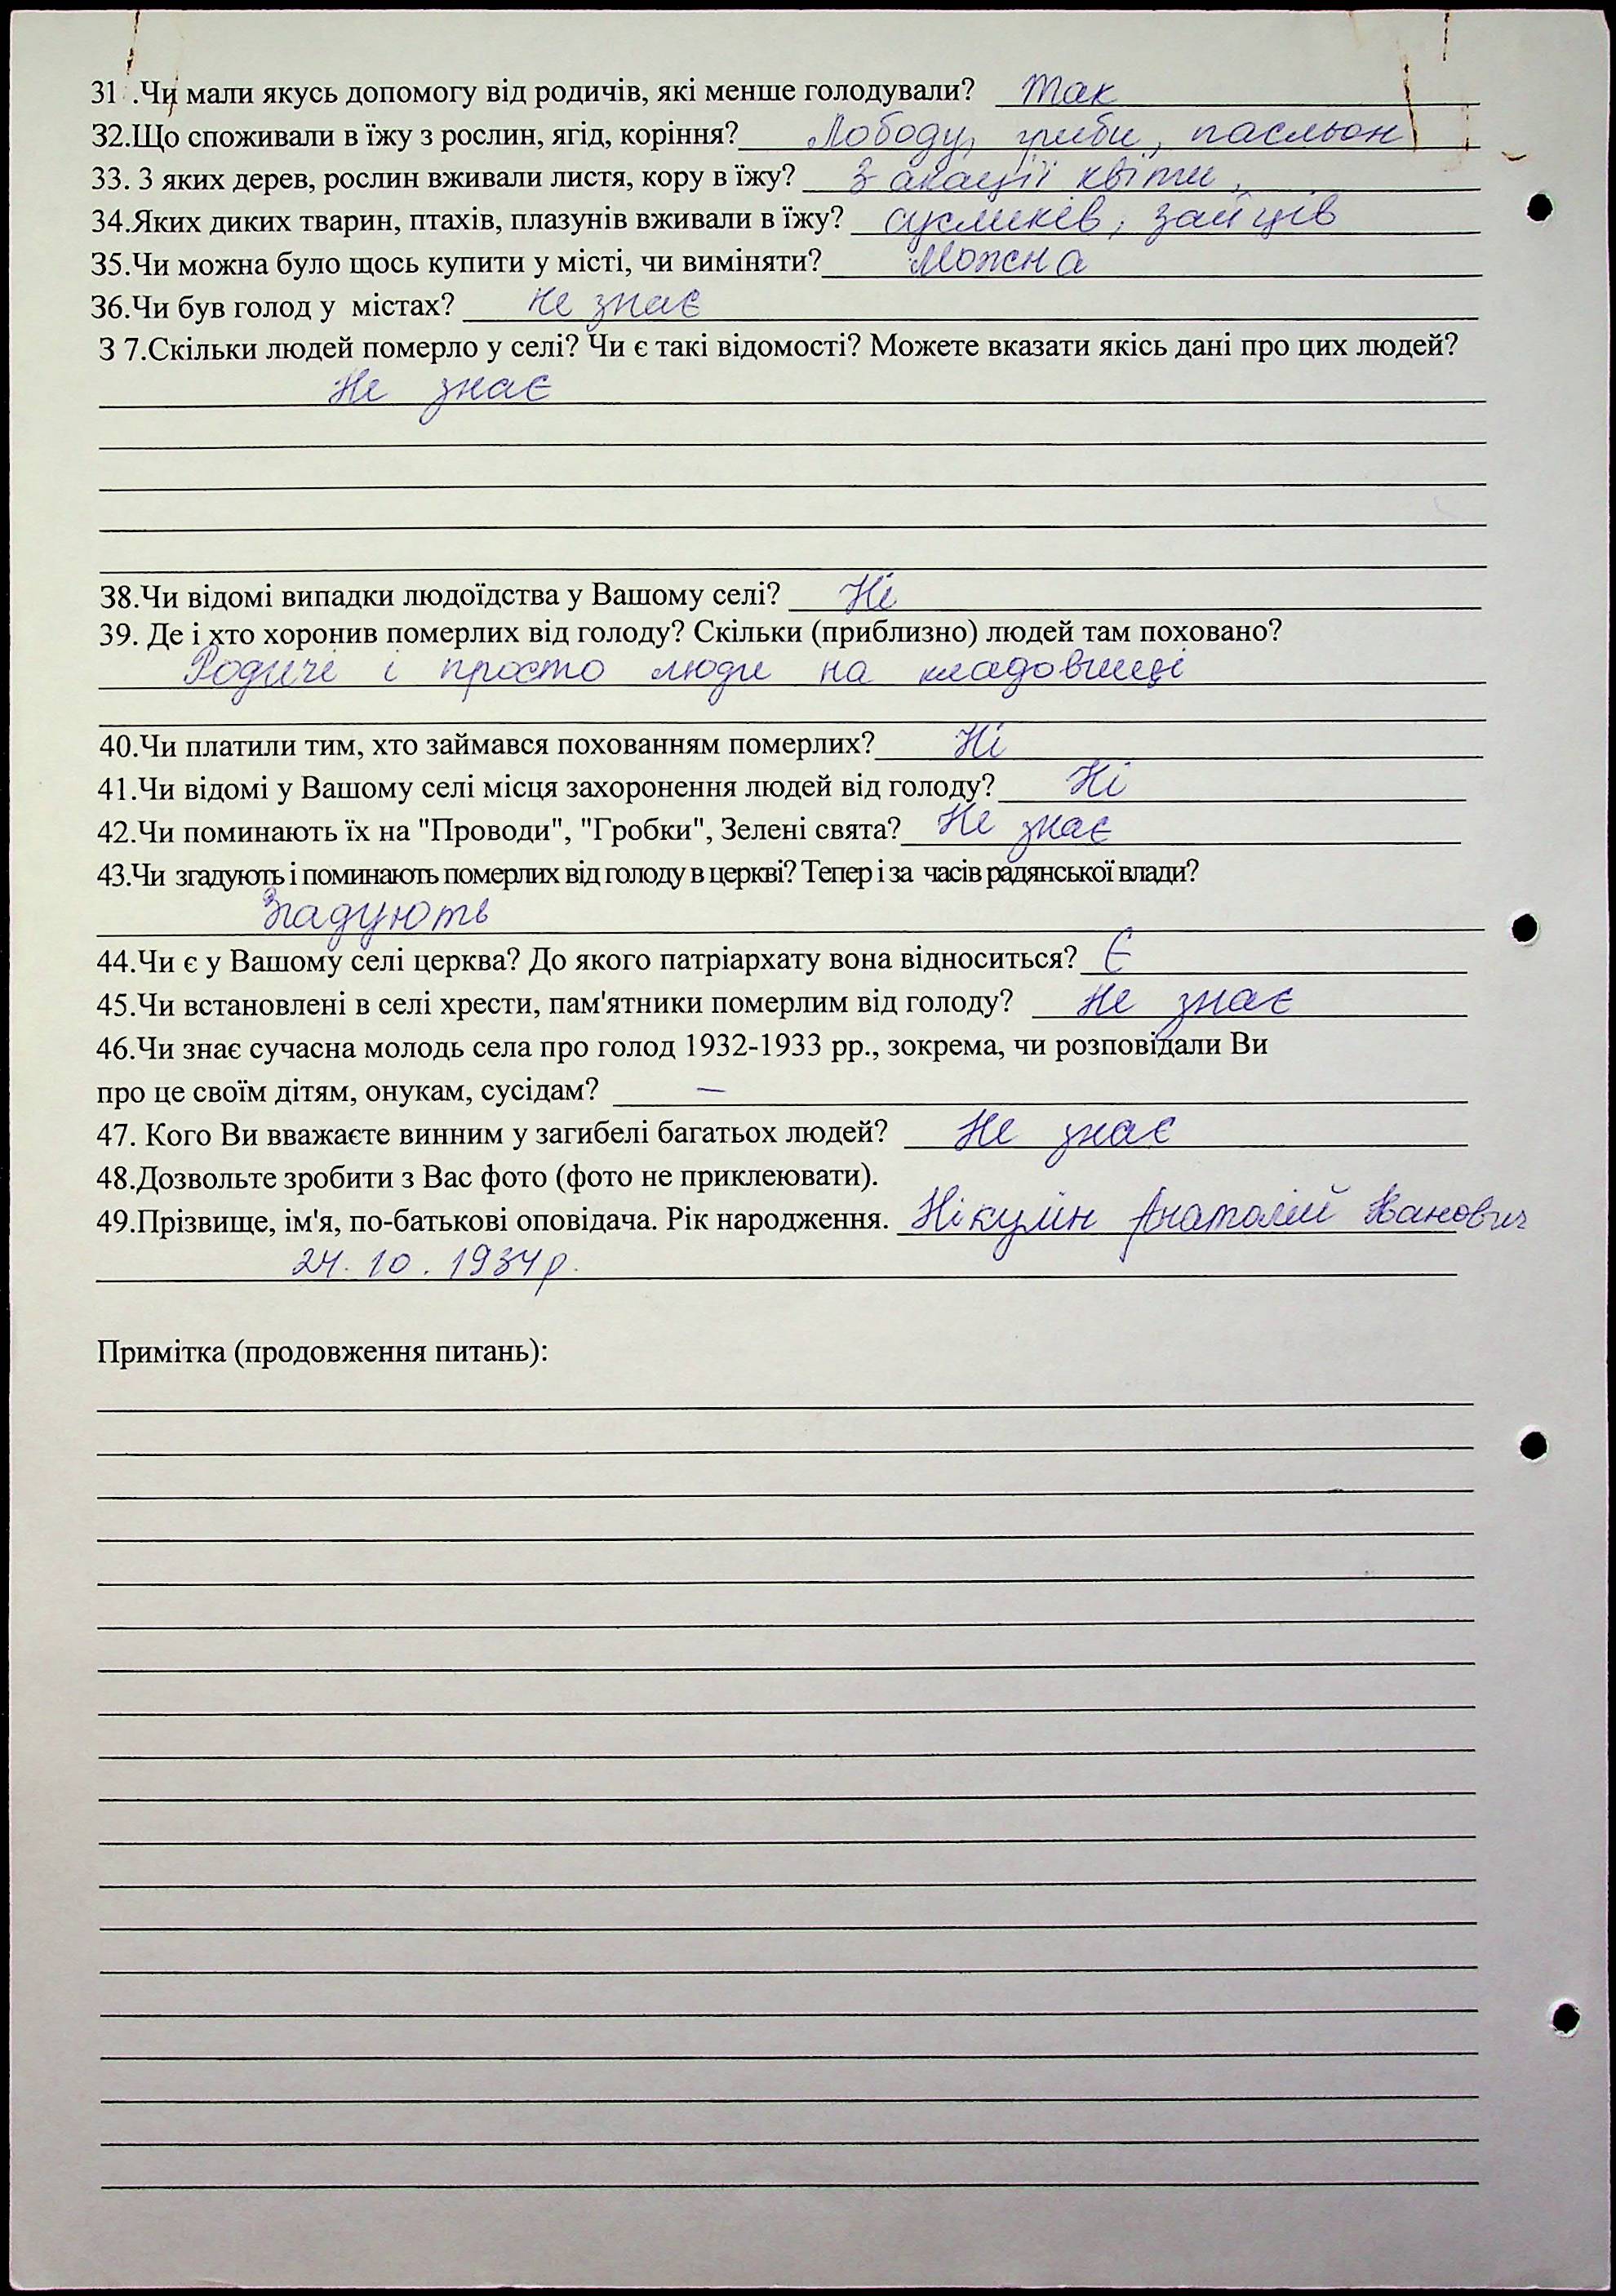 31 .Чи мали якусь допомогу від родичів, які менше голодували? Так
32.Що споживали в їжу з рослин, ягід, коріння? Лободу, гриби, пасльон
33. З яких дерев, рослин вживали листя, кору в їжу? З акації квіти,
34.Яких диких тварин, птахів, плазунів вживали в їжу? сусликів, зайців
35.Чи можна було щось купити у місті, чи виміняти? Можна
36.Чи був голод у містах? не знає
3 7.Скільки людей померло у селі? Чи є такі відомості? Можете вказати якісь дані про цих людей?
Не знає
38.Чи відомі випадки людоїдства у Вашому селі? Ні
39. Де і хто хоронив померлих від голоду? Скільки (приблизно) людей там поховано?
Родичі і просто люди на кладовищі
40.Чи платили тим, хто займався похованням померлих? Ні
41.Чи відомі у Вашому селі місця захоронення людей від голоду? Ні
42.Чи поминають їх на "Проводи", "Гробки", Зелені свята? Не знає
43.Чи згадують і поминають померлих від голоду в церкві? Тепер і за часів радянської влади?
Згадують
44.Чи є у Вашому селі церква? До якого патріархату вона відноситься? Є
45.Чи встановлені в селі хрести, пам'ятники померлим від голоду? Не знає
46.Чи знає сучасна молодь села про голод 1932-1933 рр., зокрема, чи розповідали Ви
про це своїм дітям, онукам, сусідам? –
47. Кого Ви вважаєте винним у загибелі багатьох людей? Не знає
48.Дозвольте зробити з Вас фото (фото не приклеювати).
49.Прізвище, ім'я, по-батькові оповідача. Рік народження. Нікулін Анатолій Іванович
24. 10. 1934р.
Примітка (продовження питань):